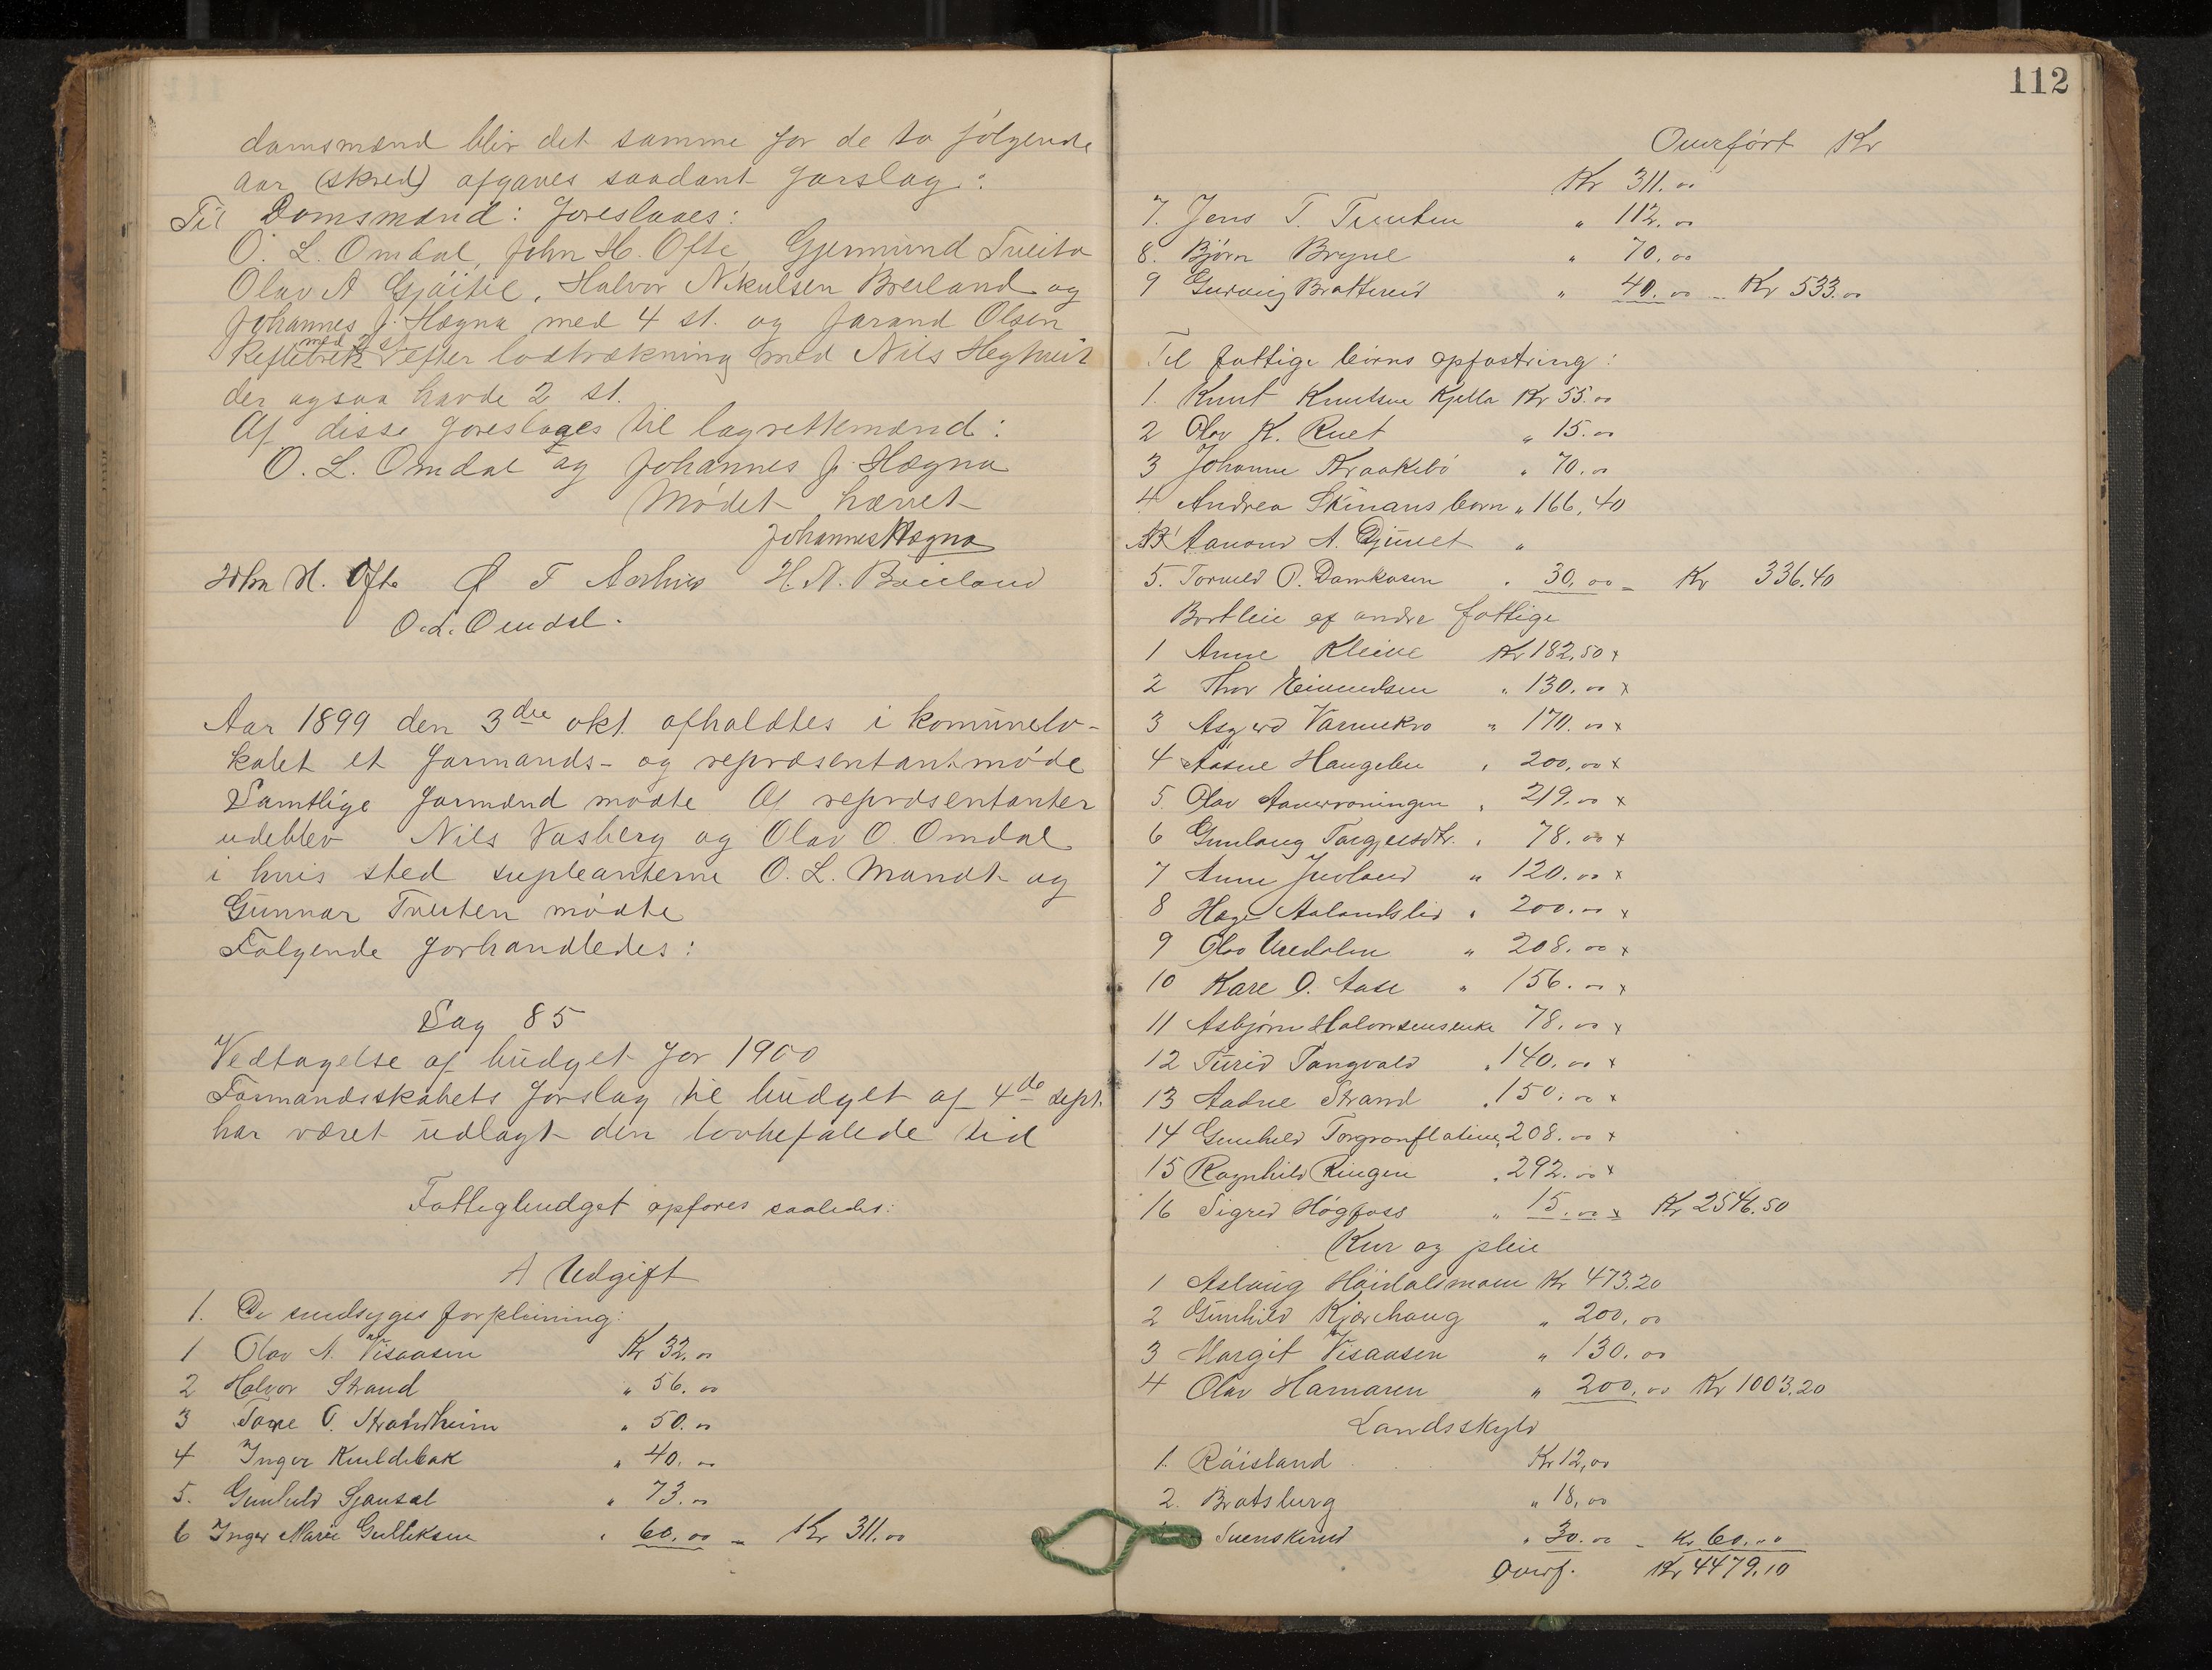 domsmænd blir det samme for de to følgende
aar (skred) afgaves saadant forslag:
Til Domsmænd: foreslaaes:
O. L. Omdal, John H. Ofte, Gjermund Tveito
Olav A Gjøitil, Halvor Nikulsen Breiland og
Johannes J. Hægna med 4 st. og Jarand Olsen
med 2 st.
efter lodtrækning med Nils Heggtveit
der ogsaa havde 2 st.
Af disse foreslages til lagrettemænd:
O. L. Omdal og Johannes J. Hægna
Mødet hævet
Johannes Hægna
John H. Ofte Ø T Aarhus H. N. Breiland
O. L. Omdal.
Aar 1899 den 3die okt. afholdtes i komunelo-
kalet et formands- og repræsentantmøde
Samtlige formænd mødte Af repræsentanter
udeblev Nils Vasberg og Olav O. Omdal
i hvis sted supleanterne O. L. Mandt og
Gunnar Tveiten mødte
Følgende forhandledes:
Sag 85
Vedtagelse af budget for 1900
Formandsskabets forslag til budget af 4de sept.
har været udlagt den lovbefalede tid
Fattigbudget opføres saaledes:
A Udgift
1. De sindsyges forpleining:
1 Olav A. Visaasen Kr 32.00
2 Halvor Strand " 56.00
3 Tone O. Strandheim " 50.00
4 Inger Kvildebak " 40.00
5. Gunhild Sjausæt " 73.00
6 Inger Marie Gulliksen " 60.00 - Kr 311.00
112
Overført Kr
Kr 311.00
7. Jens T. Tveiten " 112.00
8. Bjørn Bryne " 70.00
9 Gurvig Bratterud " 40.00 - Kr 533.00
Til fattige børns opfostring:
1. Knut Knutsen Kjella Kr 55.00
2 Olav K. Ruet " 15.00
3 Johanne Kraakebø " 70.00
4 Andrea Skinans børn " 166,40
Aanond A. Djuvet "
5. Torvild O. Damkasen " 30,00 - Kr 336.40
Bortleie af andre fattige
1 Anne Kleive Kr 182,50 x
2 Thor Eivindsen " 130.00 x
3 Asgerd Varmekro " 170.00 x
4 Aasne Haugelen " 200,00 x
5. Olav " 219.00 x
6 Gunlaug Targjeisdtr. " 78.00 x
7 Anne Juvland " 120.00 x
8 Hæge Aalandslid " 200.00 x
9 Olav Uredalen " 208.00 x
10 Kare O. Aase " 156.00 x
11 Asbjørn Halvorsens enke 78.00 x
12 Turid Tangvald " 140.00 x
13 Aadne Strand " 150.00 x
14 Gunhild Torgronflatin " 208.00 x
15 Ragnhild Ringen " 292.00 x
16 Sigrid Høgfoss " 15.00 x Kr 2546.50
Kur og pleie
1 Aslaug Høidalsmoen Kr 473.20
2 Gunhild Kjærhaug " 200,00
3 Margit Visaasen " 130.00
4 Olav Hamaren " 200,00 Kr 1003,20
Landsskyld
1. Røisland Kr 12,00
2. Bratsberg " 18,00
Svenskerud " 30.00 - Kr 60.00
Overf. Kr 4479.10